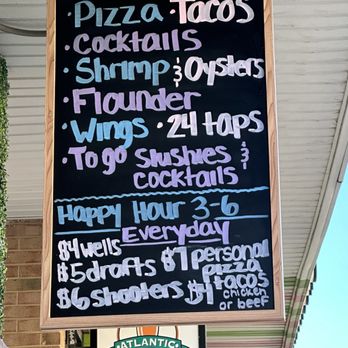 · Pizza · Tacos
· Cocktails
· Shrimp & Oysters
· Flounder
· Wings · 24 taps
· To go Slushies &
cocktails
Happy Hour 3-6
Everyday
$4 wells
$5 drafts
$6 shooters
$7 personal
pizza
$4 tacos
chicken
or beef
ATLANTIC